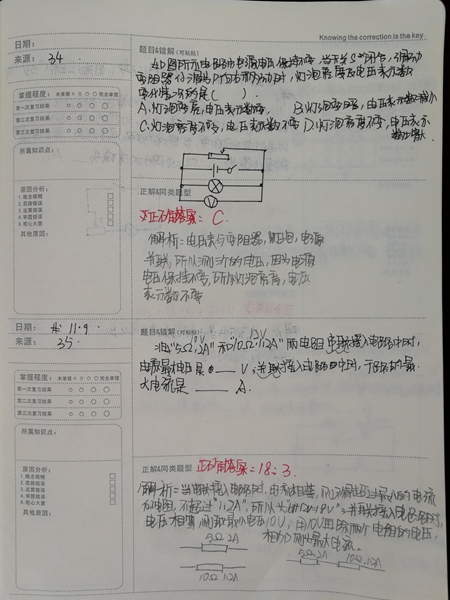 Knowing the correction is the key
日期：
来源： 34
题目&错解（可粘贴）
如图所示电路中电源电压保持不变，当开关S闭合，滑动
变阻器的滑片P向右移动时，灯泡亮度及电压表示数
变化情况是（ ）
A.灯泡变亮，电压表示数变 B.灯泡变暗，电压表示数减小
C.灯泡亮度不变，电压表示数不变 D.灯泡亮度不变，电压表示
数增大
掌握程度： 未掌握 完全掌握
第一次复习结果
第二次复习结果
第三次复习结果
所属知识点：
原因分析：
1. 概念模糊
2. 思路错误
3. 运算错误
4. 审题错误
5. 粗心大意
其他原因：
正解&同类题型
正确答案：C.
解析：电压表与变阻器，灯泡，电源
并联，所以测的电压，因为电源
电压保持不变，所以灯泡亮度，电压
表示数不变
日期： 11.9
来源： 35
题目&错解（可粘贴）
10V 12V
"5Ω 2A"和"10Ω 1.2A"两电阻串联接入电路中时，
电源最大电压是 V，并联接入电路中时，干路的最
大电流是 A.
掌握程度： 未掌握 完全掌握
第一次复习结果
第二次复习结果
第三次复习结果
所属知识点：
原因分析：
1. 概念模糊
2. 思路错误
3. 运算错误
4. 审题错误
5. 粗心大意
其他原因：
正解&同类题型
正确答案：18 3.
解析：当串联接入电路时，电流相等，的电流
不超过"1.2A"，所以 18V 并联接入电路时，
电压相等 最小电压10V，用10V 两个电阻的电压，
相加 最大电流。
5Ω 2A
10Ω 1.2A
5Ω 2A 10Ω 1.2A